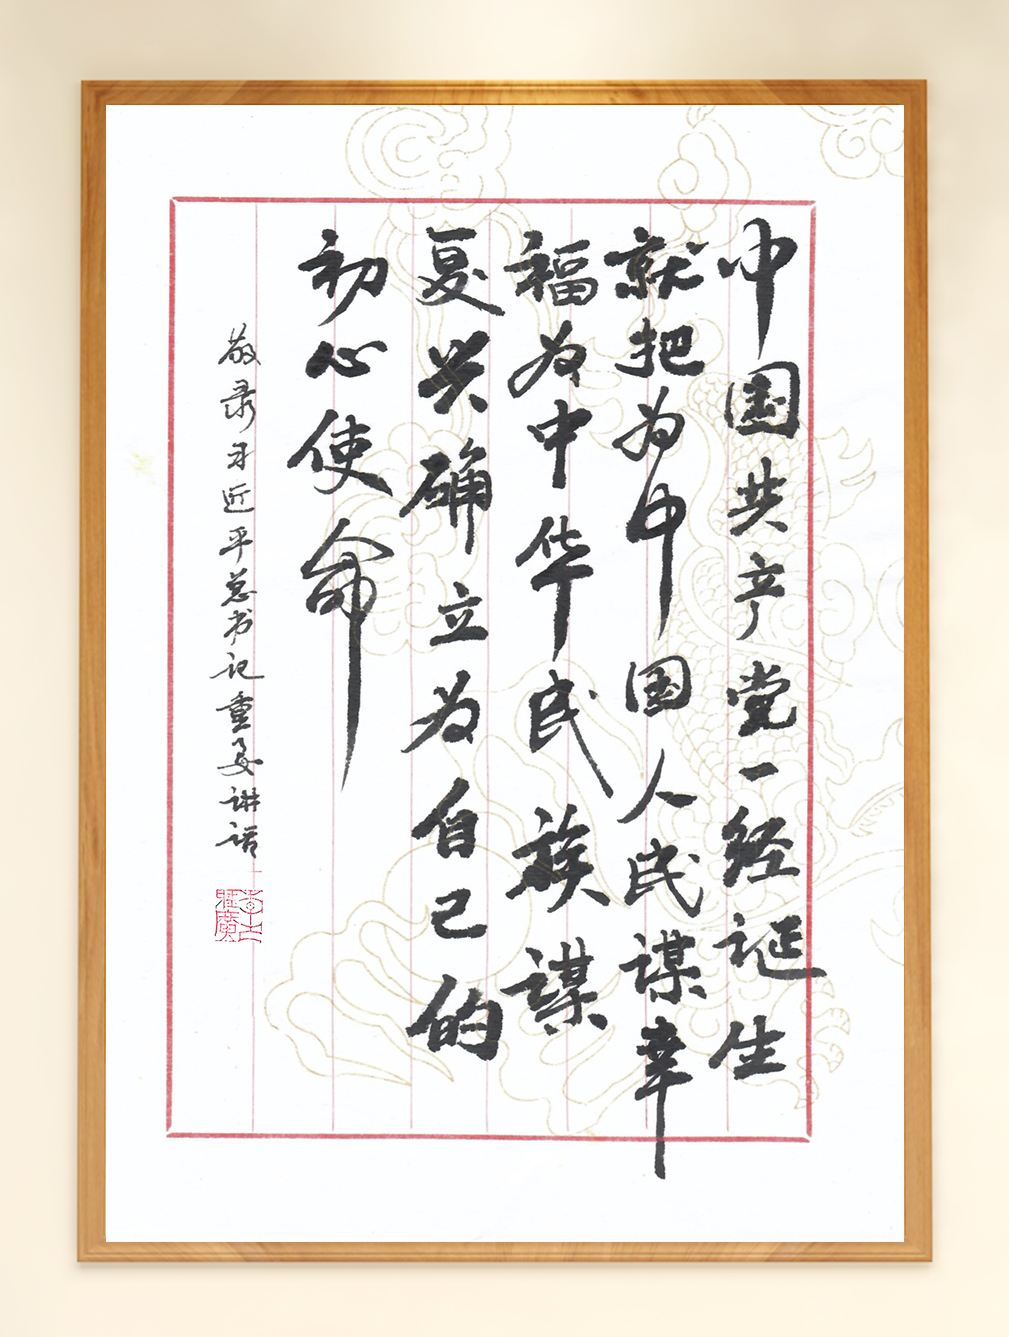 中国共产党一经诞生
就把为中国人民谋幸
福为中华民族谋
复兴确立为自己的
初心使命
敬录习近平总书记重要讲话